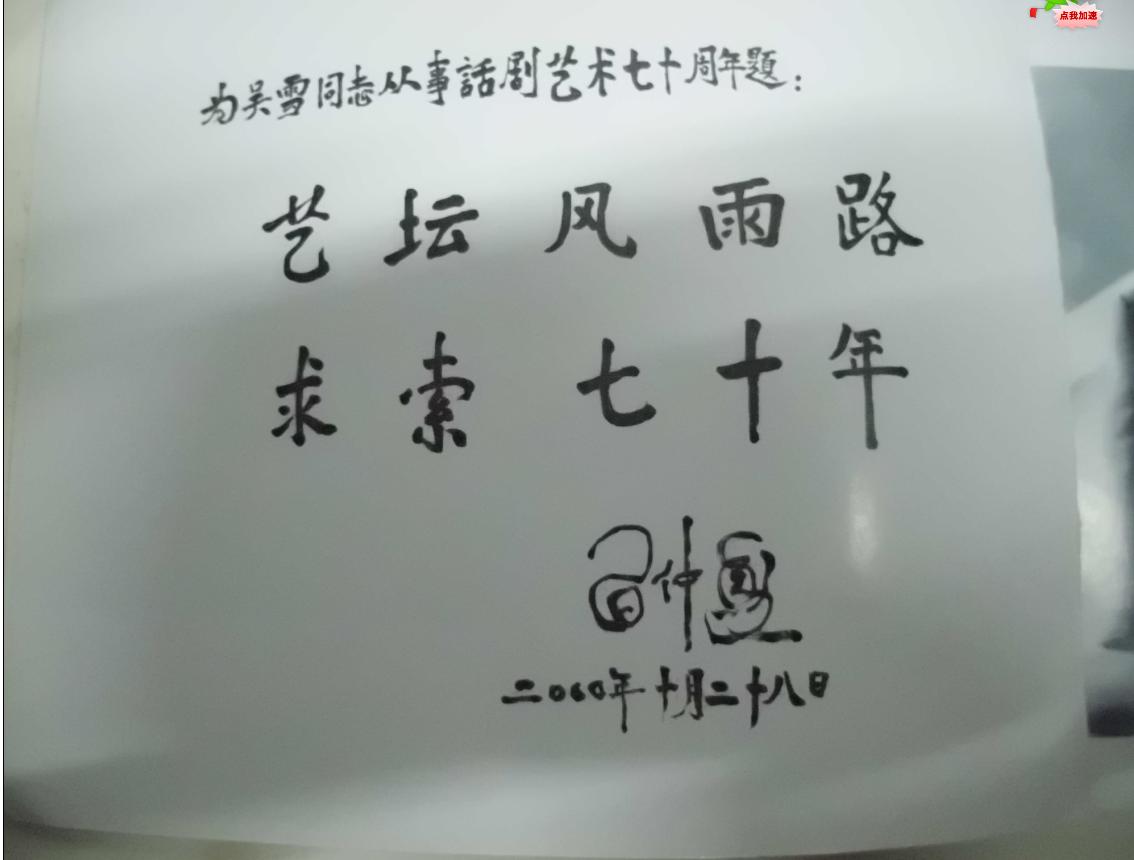 点我加速
为吴雪同志从事話剧艺术七十周年题：
艺坛风雨路
求索七十年
二000年十月二十八日